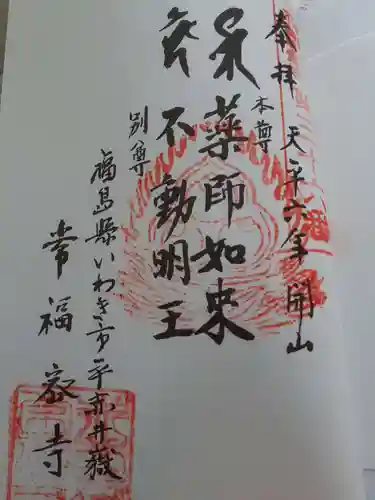 奉拝 天平六年開山
本尊
薬師如来
別尊
不動明王
福島縣いわき市平赤井嶽
常福寺